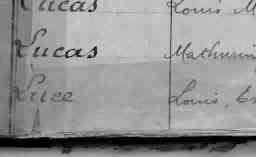 Lucas Louis M
Lucas Mathurin
Luce Louis,